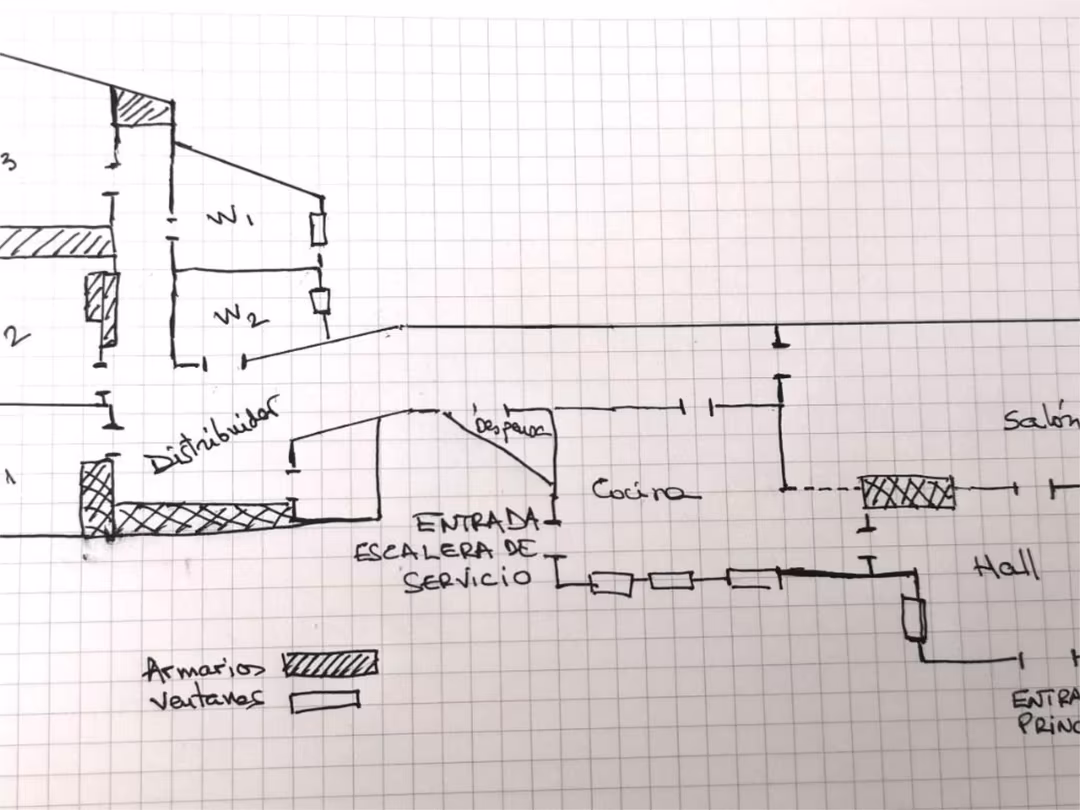 3
W1
2
W2
Distribuidor
Despensa
Salón
1
Cocina
ENTRADA
ESCALERA DE
SERVICIO
Hall
Armarios
Ventanas
ENTRA
PRINC